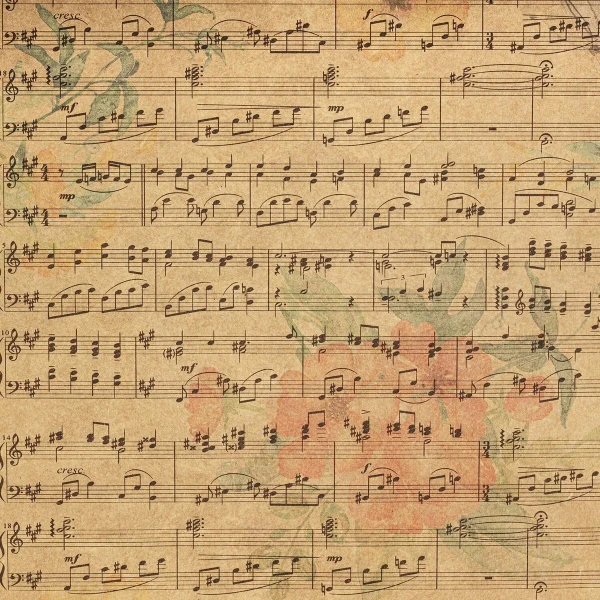 cresc. f
8
mf mp
mp
5
3
10
mf
14
cresc. f
18
mf mp